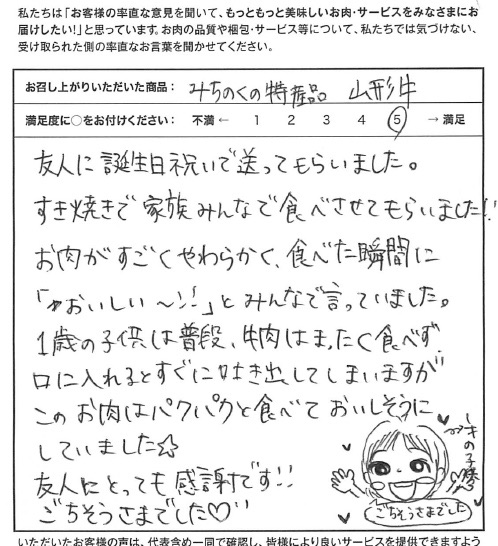 私たちは「お客様の率直な意見を聞いて、もっともっと美味しいお肉・サービスをみなさまにお
届けしたい!」と思っています。お肉の品質や梱包・サービス等について、私たちでは気づけない、
受け取られた側の率直なお言葉を聞かせてください。
お召し上がりいただいた商品: みちのくの特産品 山形牛
満足度に○をお付けください: 不満 ← 1 2 3 4 5 → 満足
友人に誕生日祝いで送ってもらいました。
すき焼きで家族みんなで食べさせてもらいました!!
お肉がすごくやわらかく、食べた瞬間に
「おいしい〜!!」とみんなで言っていました。
1歳の子供は普段、牛肉はまったく食べず
口に入れるとすぐに吐き出してしまいますが
このお肉はパクパクと食べておいしそうに
していました☆
友人にとっても感謝です!!
ごちそうさまでした♡
1才の子供
ごちそうさまでした
いただいたお客様の声は、代表含め一同で確認し、皆様により良いサービスを提供できますよう